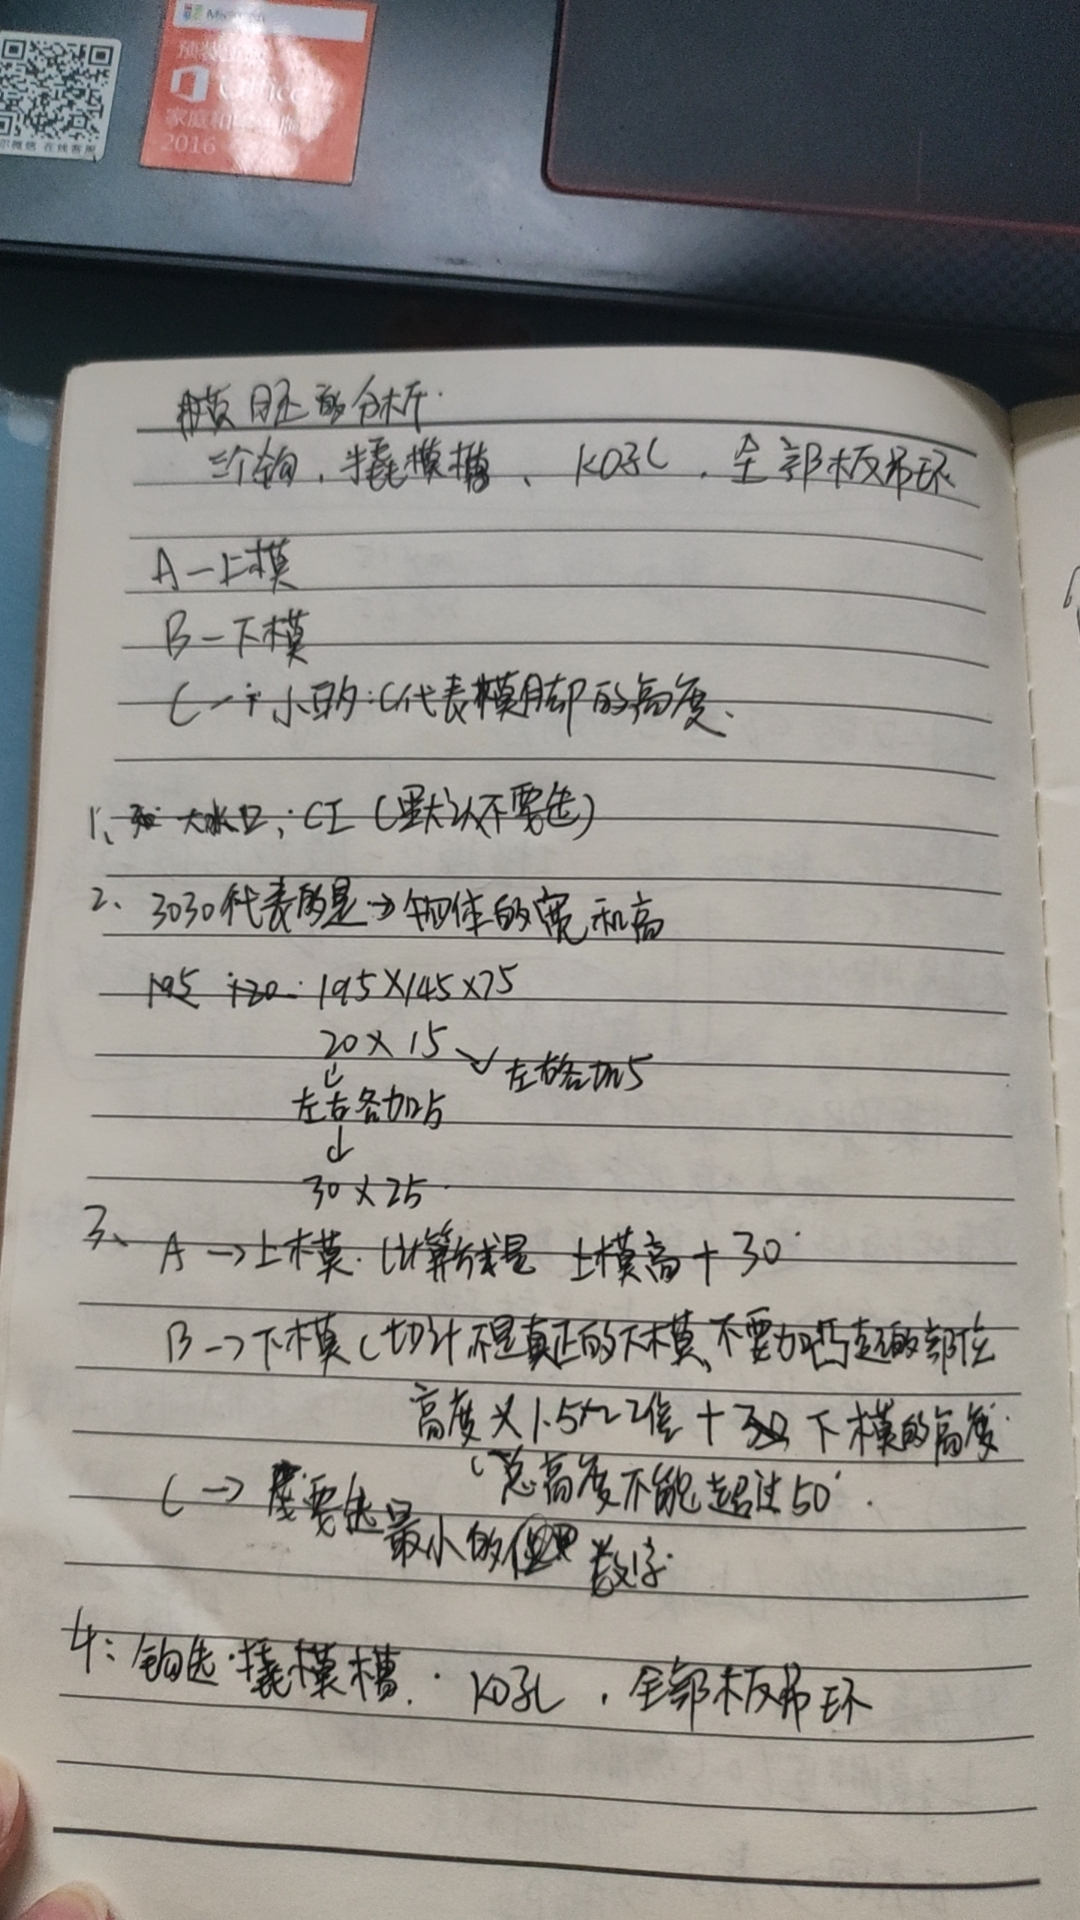 Office
2016
模胚的分析.
三个钩，撬模槽、KO孔，全部板吊环
A—上模
B—下模
C—小的:C代表模脚的高度、
1、大水口；CI（默认不要选）
2、3030代表的是→钢体的宽和高
195 +20: 195×145×75
20×15 → 左右各加5
↓
左右各加5
↓
30×25.
3、A→上模.计算方式是 上模高+30
B→下模（切计不是真正的下模、不要加凸起的部位
高度×1.5~2倍+30 下模的高度.
（总高度不能超过50.
C→要选最小的数字.
4:钩选.撬模槽.KO孔，全部板吊环